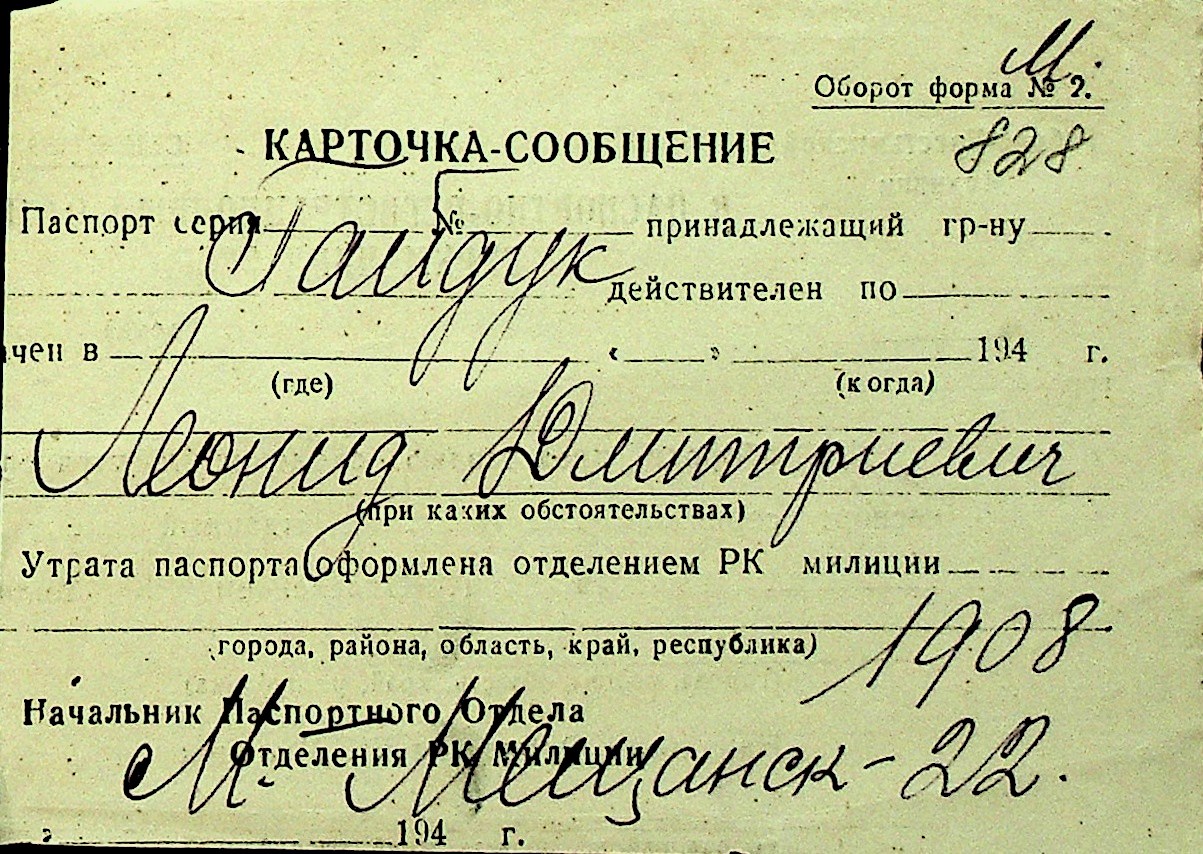 М.
Оборот форма № 2.
КАРТОЧКА-СООБЩЕНИЕ 828
Паспорт серия № принадлежащий гр-ну
Гайдук
действителен по
чен в « » 194 г.
(где) (когда)
Леонид Дмитриевич
(при каких обстоятельствах)
Утрата паспорта оформлена отделением РК милиции
1908
города, района, область, край, республика)
Начальник Паспортного Отдела
Отделения РК Милиции
М. Мещанск-22.
194 г.